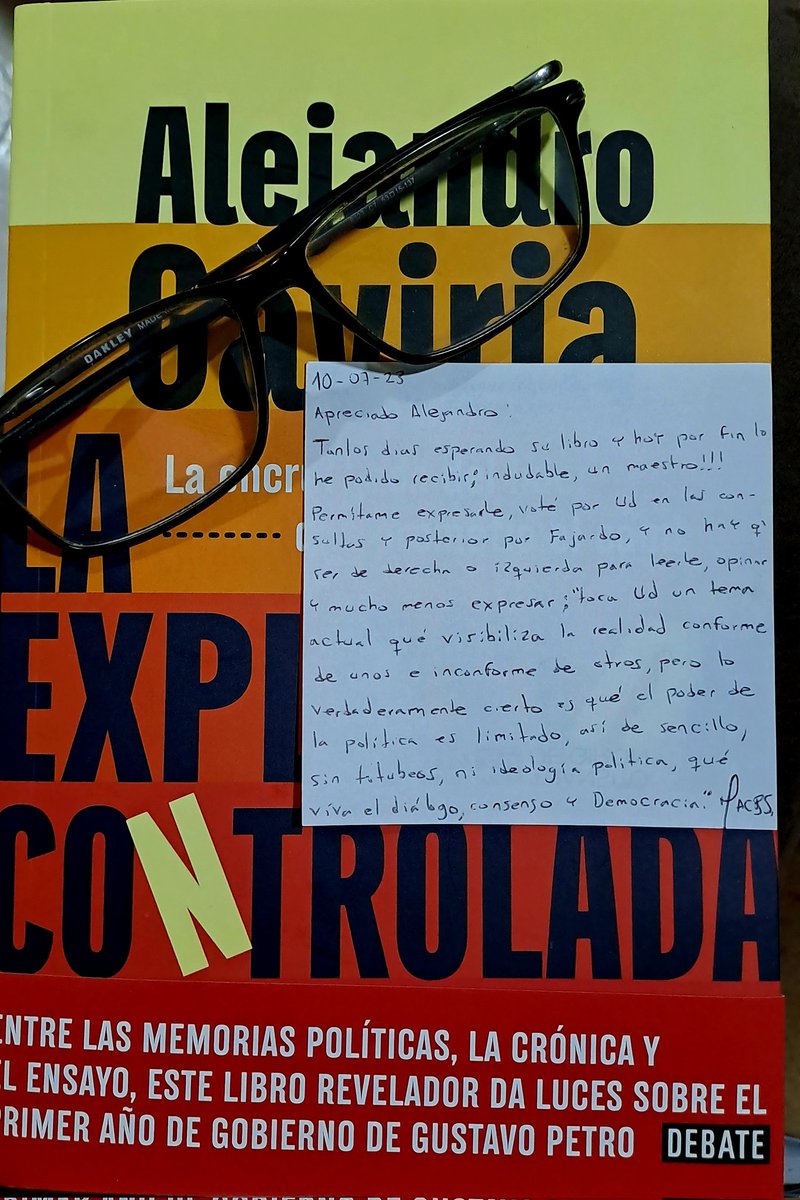 Alejandro
Gaviria
OAKLEY MADE
LA
La encru
EXPL
CONTROLADA
10-07-23
Apreciado Alejandro:
Tantos dias esperando su libro y hoy por fin lo
he podido recibir; indudable, un maestro!!!
Permítame expresarle, voté por Ud en las con-
sultas y posterior por Fajardo, y no hay q'
ser de derecha o izquierda para leerle, opinar
y mucho menos expresar; "toca Ud un tema
actual qué visibiliza la realidad conforme
de unos e inconforme de otros, pero lo
verdaderamente cierto es qué el poder de
la política es limitado, así de sencillo,
sin titubeos, ni ideología política, qué
viva el diálogo, consenso y Democracia."
ENTRE LAS MEMORIAS POLÍTICAS, LA CRÓNICA Y
EL ENSAYO, ESTE LIBRO REVELADOR DA LUCES SOBRE EL
PRIMER AÑO DE GOBIERNO DE GUSTAVO PETRO DEBATE